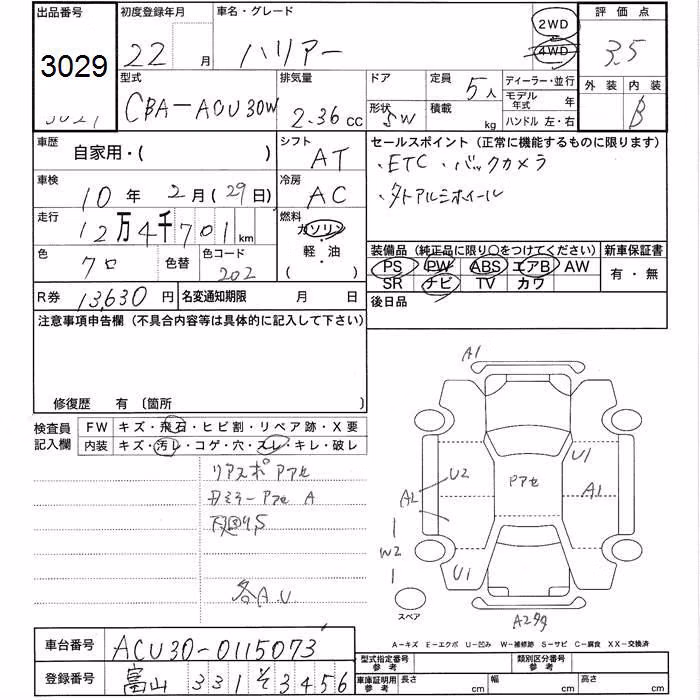 出品番号 初度登録年月 車名・グレード 評価点
3029 22 月 ハリアー 2WD 4WD 3.5
型式 排気量 ドア 定員 5人 ディーラー・並行 外装 内装
CBA-ACU30W 2.36 cc 形状 SW 積載 kg モデル年式 年 B
ハンドル 左・右
車歴 自家用・( ) シフト AT セールスポイント (正常に機能するものに限ります)
・ETC ・バックカメラ
車検 10年 2月(29日) 冷房 AC
走行 12万4千701km 燃料 ガソリン・軽油 ( )
装備品 (純正品に限り○をつけてください) 新車保証書
色 クロ 色替 色コード 202 PS PW ABS エアB AW 有・無
SR ナビ TV カワ
R券 13,630円 名変通知期限 月 日 後日品
注意事項申告欄 (不具合内容等は具体的に記入して下さい)
修復歴 有 (箇所 )
検査員記入欄 FW キズ・飛石・ヒビ割・リペア跡・X要
内装 キズ・汚レ・コゲ・穴・スレ・キレ・破レ
リアスポ Pアセ
A
各A.U
A1
U1
U2
Pアセ
A2
A1
W2
U1
スペア
A-キズ E-エクボ U-凹み W-補修跡 S-サビ C-腐食 XX-交換済
車台番号 ACU30-0115073
型式指定番号 参考 類別区分番号 参考
登録番号 富山 331 そ 3456
車庫証明用 参考 長さ cm 幅 cm 高さ cm